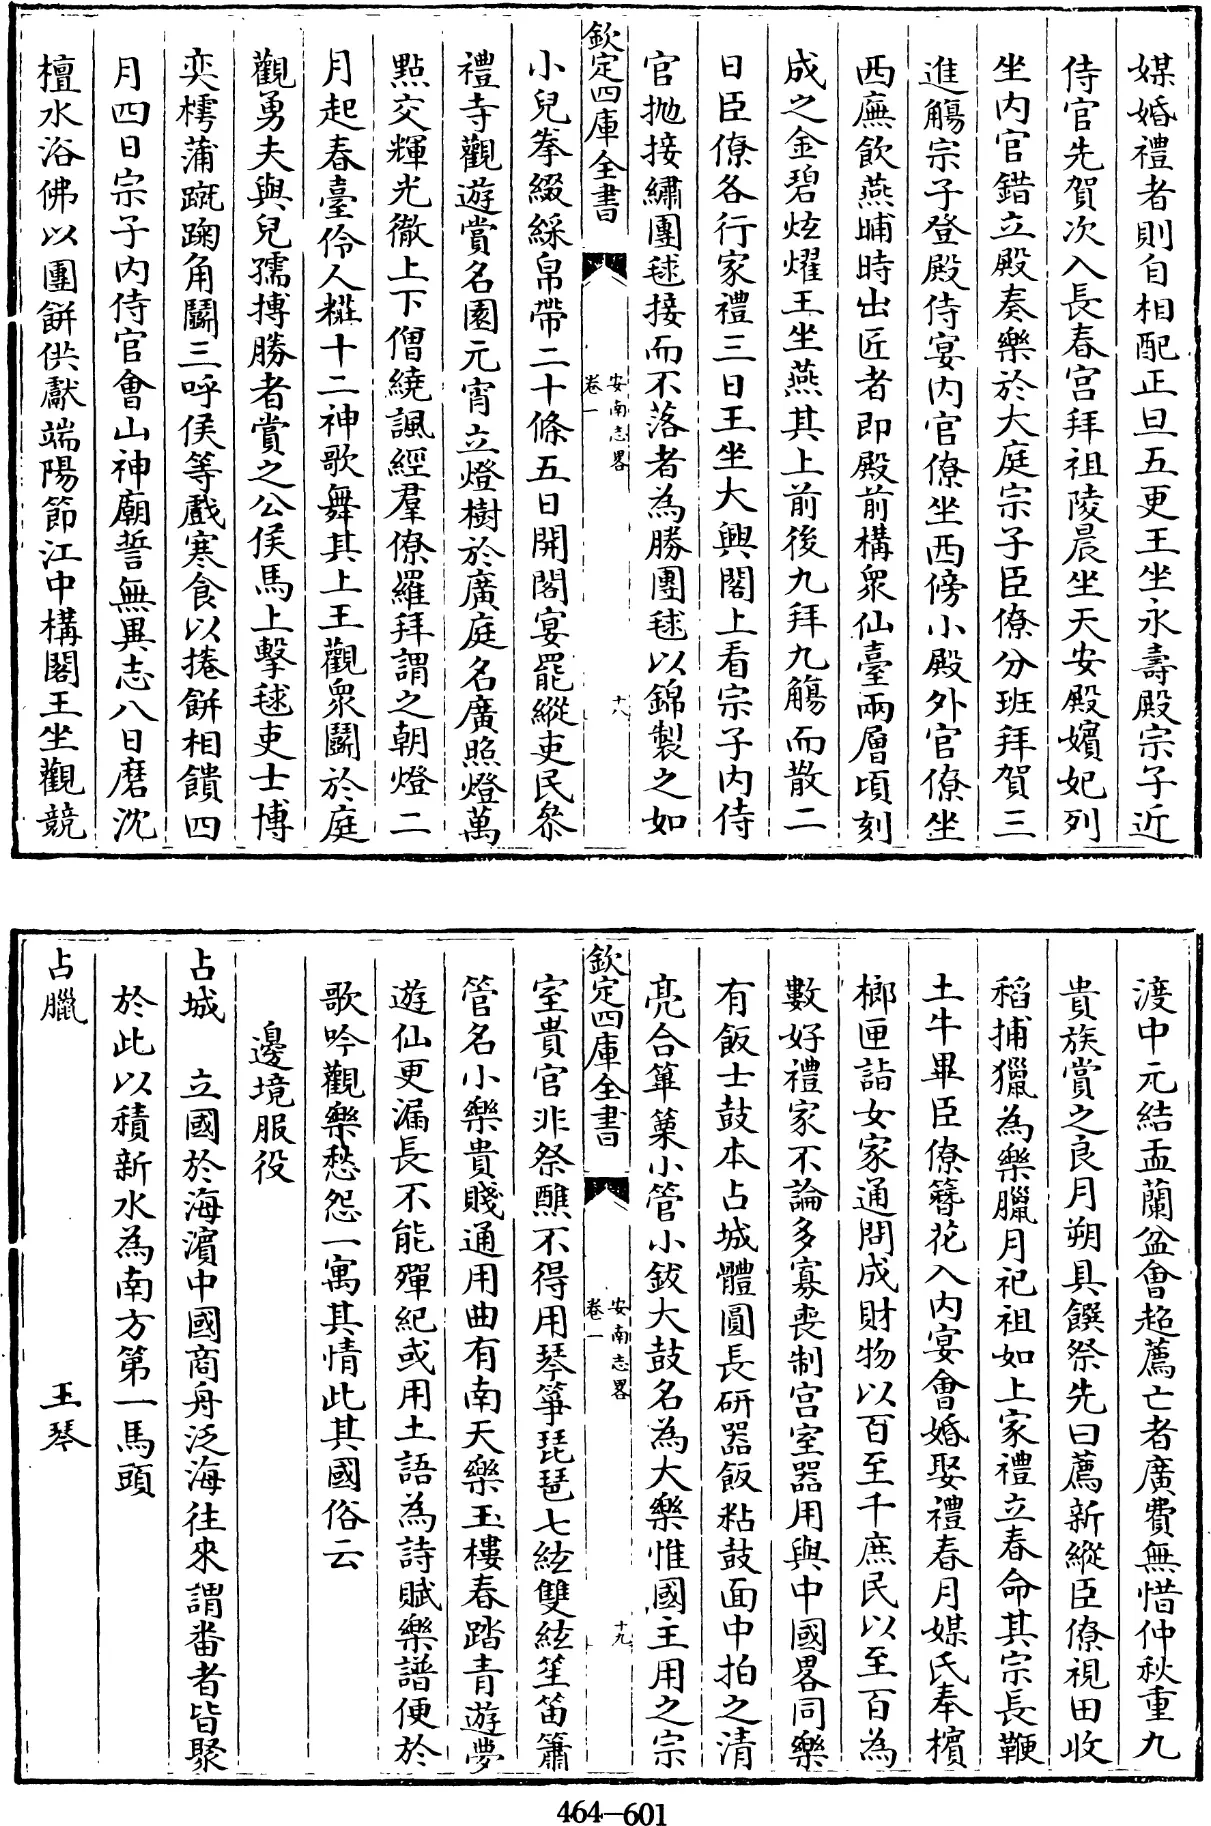 媒婚禮者則自相配正旦五更王坐永壽殿宗子近
侍官先賀次入長春宮拜祖陵晨坐天安殿嬪妃列
坐内官錯立殿奏樂於大庭宗子臣僚分班拜賀三
進觴宗子登殿侍宴内官僚坐西傍小殿外官僚坐
西廡飲燕晡時出匠者即殿前構衆仙臺兩層頃刻
成之金碧炫燿王坐燕其上前後九拜九觴而散二
日臣僚各行家禮三日王坐大興閣上看宗子内侍
官抛接繡團毬接而不落者為勝團毬以錦製之如
欽定四庫全書
安南志畧
卷一
十八
小兒拳綴綵帛帶二十條五日開閣宴罷縱吏民叅
禮寺觀遊賞名園元宵立燈樹於廣庭名廣照燈萬
點交輝光徹上下僧繞諷經羣僚羅拜謂之朝燈二
月起春臺伶人糚十二神歌舞其上王觀衆鬭於庭
觀勇夫與兒孺搏勝者賞之公侯馬上擊毬吏士博
奕樗蒲蹴踘角鬭三呼侯等戲寒食以捲餅相饋四
月四日宗子内侍官會山神廟誓無異志八日磨沈
檀水浴佛以團餅供獻端陽節江中構閣王坐觀競
渡中元結盂蘭盆會超薦亡者廣費無惜仲秋重九
貴族賞之良月朔具饌祭先曰薦新縱臣僚視田收
稻捕獵為樂臘月祀祖如上家禮立春命其宗長鞭
土牛畢臣僚簪花入内宴會婚娶禮春月媒氏奉檳
榔匣詣女家通問成財物以百至千庶民以至百為
數好禮家不論多寡喪制宮室器用與中國畧同樂
有飯士鼓本占城體圓長研器飯粘鼓面中拍之清
亮合篳篥小管小鈸大鼓名為大樂惟國主用之宗
欽定四庫全書
安南志畧
卷一
十九
室貴官非祭醮不得用琴箏琵琶七絃雙絃笙笛簫
管名小樂貴賤通用曲有南天樂玉樓春踏青遊夢
遊仙更漏長不能殫紀或用土語為詩賦樂譜便於
歌吟觀樂愁怨一寓其情此其國俗云
邊境服役
占城　立國於海濵中國商舟泛海往來謂畨者皆聚
於此以積新水為南方第一馬頭
占臘　王琴
464—601